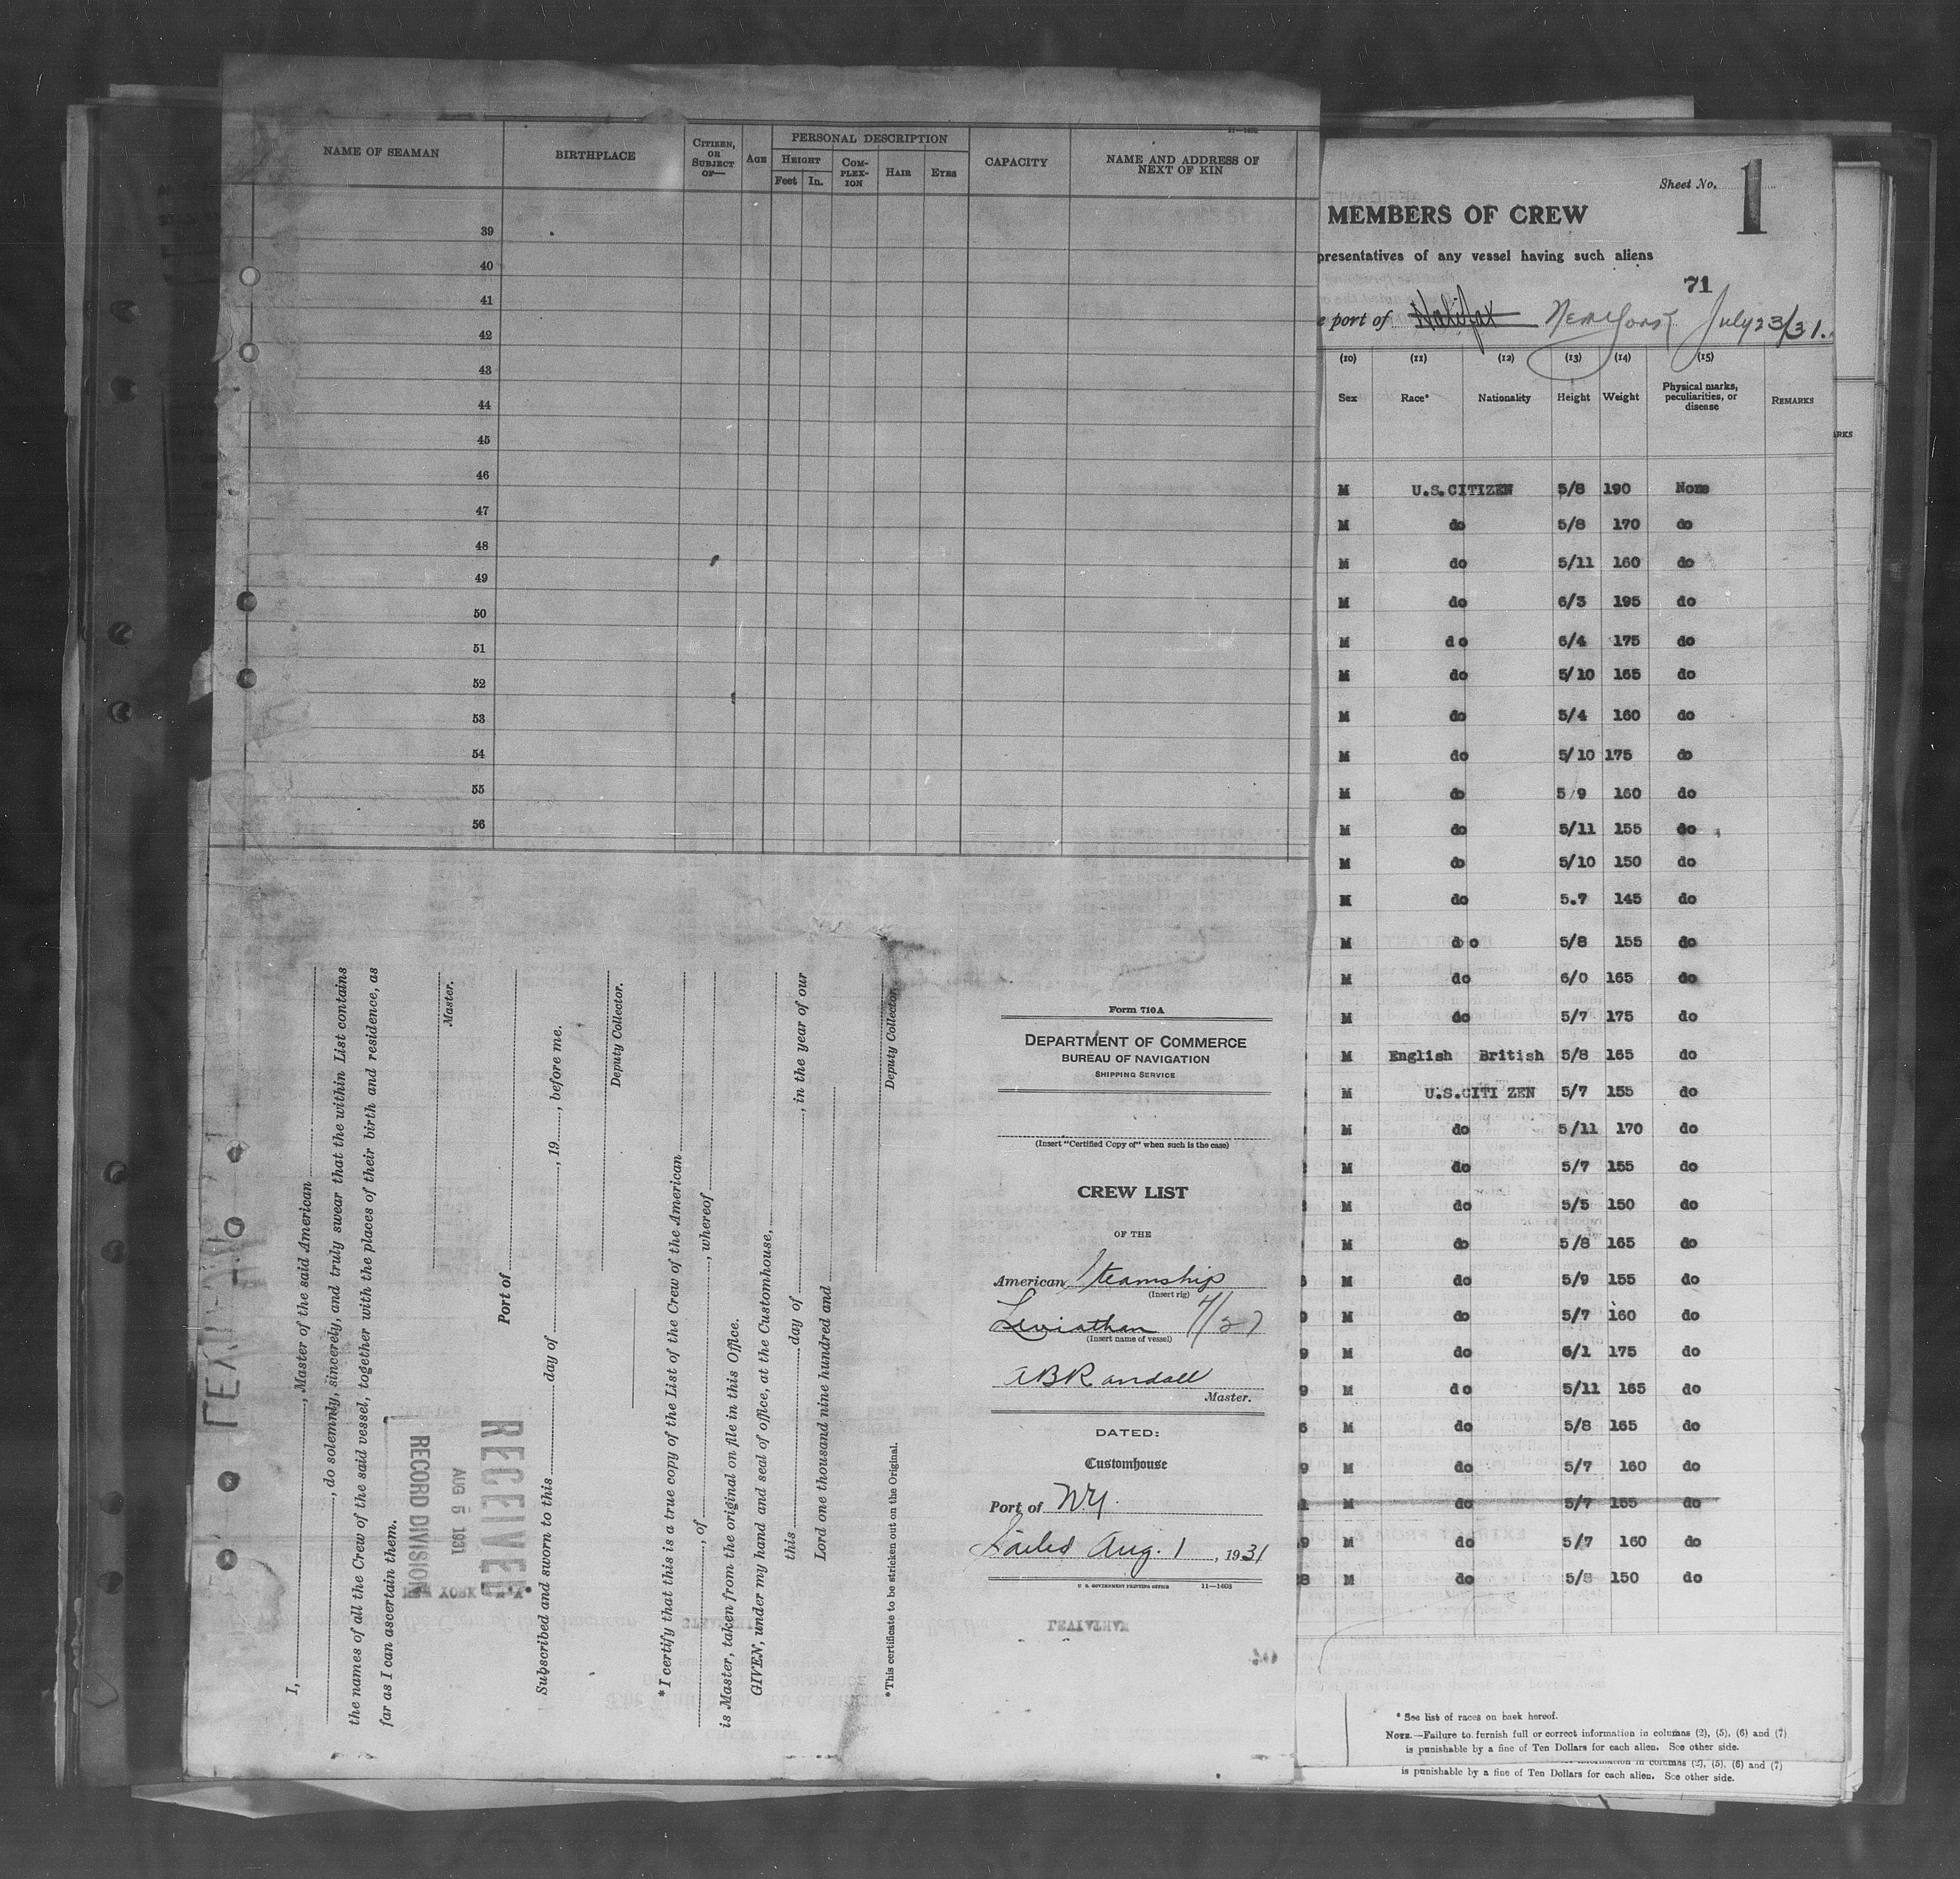 11—1602
NAME OF SEAMAN
BIRTHPLACE
CITIZEN, OR SUBJECT OF—
AGE
PERSONAL DESCRIPTION
HEIGHT
Feet
In.
COM-PLEX-ION
HAIR
EYES
CAPACITY
NAME AND ADDRESS OF NEXT OF KIN
39
40
41
42
43
44
45
46
47
48
49
50
51
52
53
54
55
56
I, , Master of the said American
, do solemnly, sincerely, and truly swear that the within List contains
the names of all the Crew of the said vessel, together with the places of their birth and residence, as
far as I can ascertain them.
Master.
RECORD DIVISION
AUG 5 1931
RECEIVED
NEW YORK
Port of
Subscribed and sworn to this day of , 19 , before me.
Deputy Collector.
* I certify that this is a true copy of the List of the Crew of the American
, of , whereof
is Master, taken from the original on file in this Office.
GIVEN, under my hand and seal of office, at the Customhouse,
this day of , in the year of our
Lord one thousand nine hundred and
Deputy Collector.
*This certificate to be stricken out on the Original.
Form 710A
DEPARTMENT OF COMMERCE
BUREAU OF NAVIGATION
SHIPPING SERVICE
(Insert "Certified Copy of" when such is the case)
CREW LIST
OF THE
American Steamship
(Insert rig)
Leviathan
(Insert name of vessel)
A B Randall
Master.
DATED:
Customhouse
Port of N.Y.
Sailed Aug. 1 , 1931
U. S. GOVERNMENT PRINTING OFFICE 11—1603
Sheet No. 1
MEMBERS OF CREW
presentatives of any vessel having such aliens
71
e port of Halifax New York July 23/31.
(10) (11) (12) (13) (14) (15)
Sex Race* Nationality Height Weight Physical marks, peculiarities, or disease REMARKS
ARKS
M U.S.CITIZEN 5/8 190 None
M do 5/8 170 do
M do 5/11 160 do
M do 6/3 195 do
M do 6/4 175 do
M do 5/10 165 do
M do 5/4 160 do
M do 5/10 175 do
M do 5/9 160 do
M do 5/11 155 do
M do 5/10 150 do
M do 5.7 145 do
M do 5/8 155 do
M do 6/0 165 do
M do 5/7 175 do
M English British 5/8 165 do
M U.S.CITI ZEN 5/7 155 do
M do 5/11 170 do
M do 5/7 155 do
M do 5/5 150 do
M do 5/8 165 do
M do 5/9 155 do
M do 5/7 160 do
9 M do 6/1 175 do
9 M do 5/11 165 do
M do 5/8 165 do
9 M do 5/7 160 do
1 M do 5/7 155 do
9 M do 5/7 160 do
8 M do 5/8 150 do
* See list of races on back hereof.
NOTE.—Failure to furnish full or correct information in columns (2), (5), (6) and (7)
is punishable by a fine of Ten Dollars for each alien. See other side.
information in columns (2), (5), (6) and (7)
is punishable by a fine of Ten Dollars for each alien. See other side.